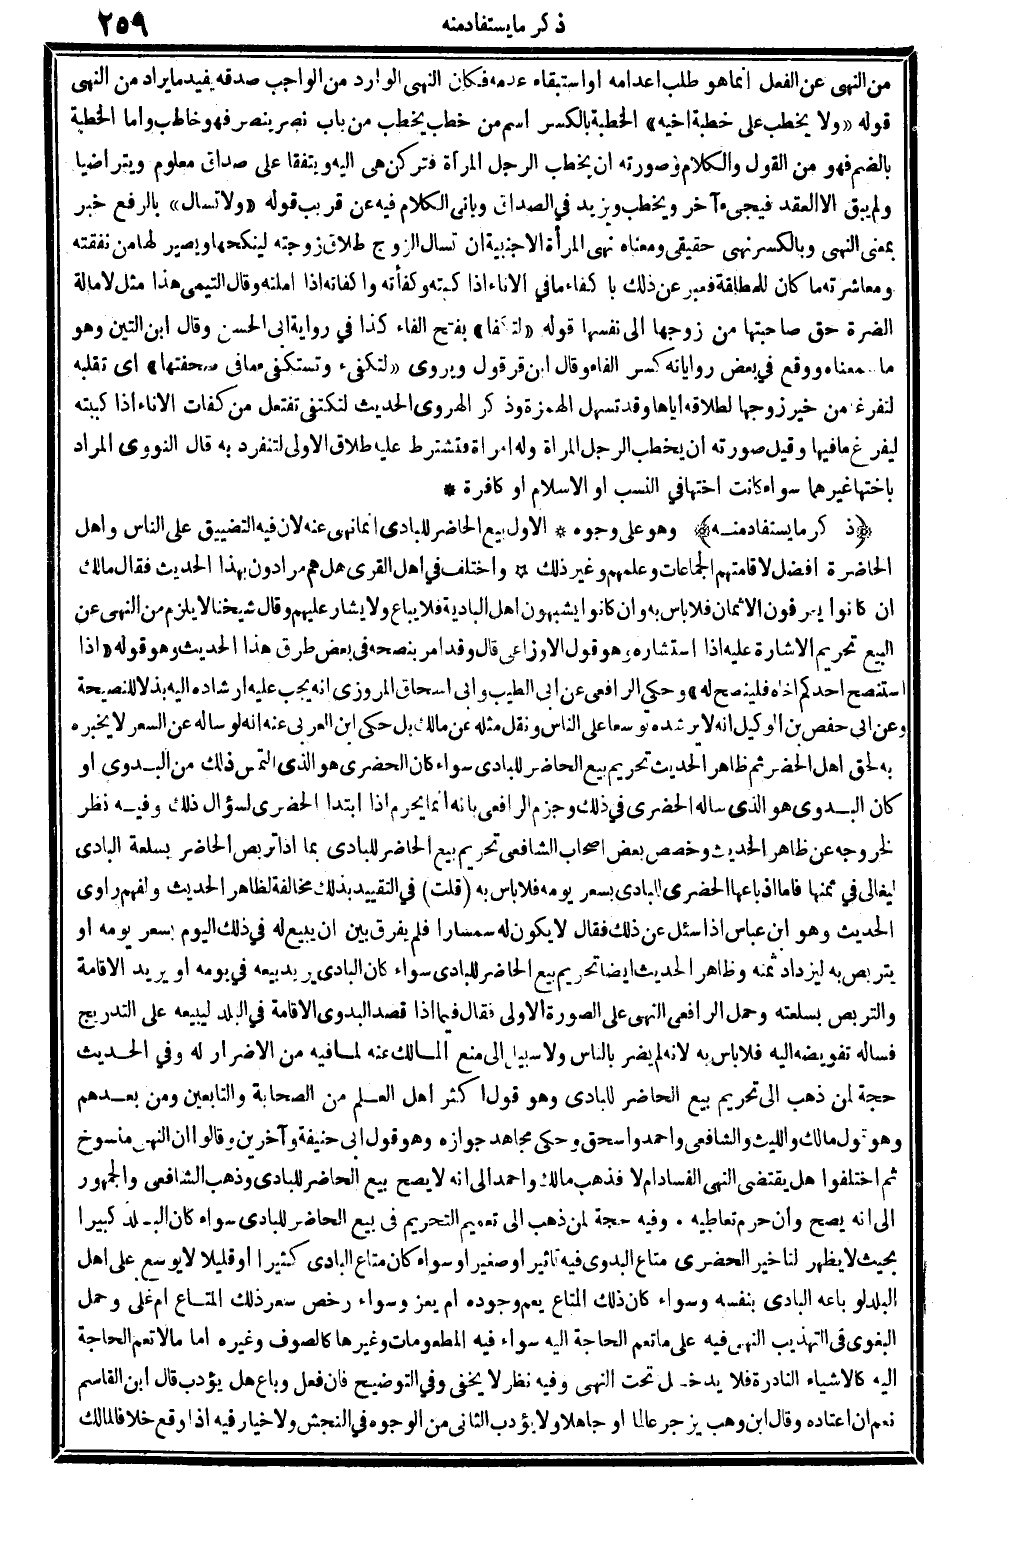 ذكر ما يستفاد منه ٢٥٩
من النهى عن الفعل انما هو طلب اعدامه او استبقاء عدمه فكان النهى الوارد من الواجب صدقه يفيد ما يراد من النهى
قوله «ولا يخطب على خطبة اخيه» الخطبة بالكسر اسم من خطب يخطب من باب نصر ينصر فهو خاطب واما الخطبة
بالضم فهو من القول والكلام وصورته ان يخطب الرجل المرأة فتركن هى اليه ويتفقا على صداق معلوم ويتراضيا
ولم يبق الا العقد فيجىء آخر ويخطب ويزيد في الصداق وياتى الكلام فيه عن قريب قوله «ولا تسال» بالرفع خبر
بمعنى النهى وبالكسر نهى حقيقى ومعناه نهى المرأة الاجنبية ان تسال الزوج طلاق زوجته لينكحها ويصير لها من نفقته
ومعاشرته ما كان للمطلقة فعبر عن ذلك باكفاء ما في الاناء اذا كببته وكفأته واكفاته اذا املته وقال التيمى هذا مثل لامالة
الضرة حق صاحبتها من زوجها الى نفسها قوله «لتكفا» بفتح الفاء كذا في رواية ابى الحسن وقال ابن التين وهو
ما معناه ووقع في بعض رواياته كسر الفاء وقال ابن قرقول ويروى «لتكفىء وتستكفىء ما فى صحفتها» اى تقلبه
لتفرغ من خير زوجها لطلاقه اياها وقد تسهل الهمزة وذكر الهروى الحديث لتكتفئ تفتعل من كفات الاناء اذا كببته
ليفرغ ما فيها وقيل صورته ان يخطب الرجل المراة وله امراة فتشترط عليه طلاق الاولى لتنفرد به قال النووى المراد
باختها غيرها سواء كانت اختها في النسب او الاسلام او كافرة *
﴿ذكر ما يستفاد منه﴾ وهو على وجوه * الاول بيع الحاضر للبادى انما نهى عنه لان فيه التضييق على الناس واهل
الحاضرة افضل لاقامتهم الجماعات وعلمهم وغير ذلك * واختلف في اهل القرى هل هم مرادون بهذا الحديث فقال مالك
ان كانوا يعرفون الاثمان فلا باس به وان كانوا يشبهون اهل البادية فلا يباع ولا يشار عليهم وقال شيخنا لا يلزم من النهى عن
البيع تحريم الاشارة عليه اذا استشاره وهو قول الاوزاعى قال وقد امر بنصحه فى بعض طرق هذا الحديث وهو قوله «اذا
استنصح احدكم اخاه فلينصح له» وحكى الرافعى عن ابى الطيب وابى اسحاق المروزى انه يجب عليه ارشاده اليه بذلا للنصيحة
وعن ابى حفص بن الوكيل انه لا يرشده توسعا على الناس ونقل مثله عن مالك بل حكى ابن العربى عنه انه لو ساله عن السعر لا يخبره
به لحق اهل الحضر ثم ظاهر الحديث تحريم بيع الحاضر للبادى سواء كان الحضرى هو الذى التمس ذلك من البدوى او
كان البدوى هو الذى ساله الحضرى في ذلك وجزم الرافعى بانه انما يحرم اذا ابتدا الحضرى لسؤال ذلك وفيه نظر
لخروجه عن ظاهر الحديث وخصص بعض اصحاب الشافعى تحريم بيع الحاضر للبادى بما اذا تربص الحاضر بسلعة البادى
ليغالى في ثمنها فاما اذا باعها الحضرى للبادى بسعر يومه فلا باس به (قلت) في التقييد بذلك مخالفة لظاهر الحديث ولفهم راوى
الحديث وهو ابن عباس اذا سئل عن ذلك فقال لا يكون له سمسارا فلم يفرق بين ان يبيع له في ذلك اليوم بسعر يومه او
يتربص به ليزداد ثمنه وظاهر الحديث ايضا تحريم بيع الحاضر للبادى سواء كان البادى يريد بيعه في يومه او يريد الاقامة
والتربص بسلعته وحمل الرافعى النهى على الصورة الاولى فقال فيما اذا قصد البدوى الاقامة في البلد ليبيعه على التدريج
فساله تفويضه اليه فلا باس به لانه لم يضر بالناس ولا سبيل الى منع المالك عنه لما فيه من الاضرار له وفي الحديث
حجة لمن ذهب الى تحريم بيع الحاضر للبادى وهو قول اكثر اهل العلم من الصحابة والتابعين ومن بعدهم
وهو قول مالك والليث والشافعى واحمد واسحق وحكى مجاهد جوازه وهو قول ابى حنيفة وآخرين وقالوا ان النهى منسوخ
ثم اختلفوا هل يقتضى النهى الفساد ام لا فذهب مالك واحمد الى انه لا يصح بيع الحاضر للبادى وذهب الشافعى والجمهور
الى انه يصح وان حرم تعاطيه . وفيه حجة لمن ذهب الى تعميم التحريم فى بيع الحاضر للبادى سواء كان البلد كبيرا
بحيث لا يظهر لتاخير الحضرى متاع البدوى فيه تاثير او صغيرا وسواء كان متاع البادى كثيرا او قليلا لا يوسع على اهل
البلد لو باعه البادى بنفسه وسواء كان ذلك المتاع يعم وجوده ام يعز وسواء رخص سعر ذلك المتاع ام غلى وحمل
البغوى فى التهذيب النهى فيه على ما تعم الحاجة اليه سواء فيه المطعومات وغيرها كالصوف وغيره اما ما لا تعم الحاجة
اليه كالاشياء النادرة فلا يدخل تحت النهى وفيه نظر لا يخفى وفي التوضيح فان فعل وباع هل يؤدب قال ابن القاسم
نعم ان اعتاده وقال ابن وهب يزجر عالما او جاهلا ولا يؤدب الثانى من الوجوه في النجش ولا خيار فيه اذا وقع خلافا لمالك